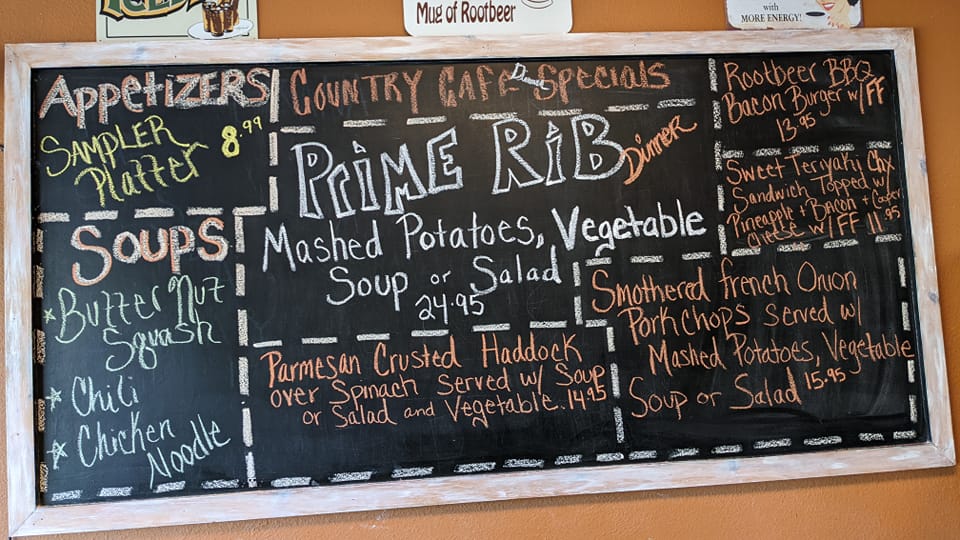 Mug of Rootbeer
with
MORE ENERGY!
APPETIZERS
SAMPLER
Platter 8.99
Soups
☆ Butter Nut
Squash
☆ Chili
☆ Chicken
Noodle
COUNTRY CAFE Dinner SPECIALS
PRiME RiB Dinner
Mashed Potatoes, Vegetable
Soup or Salad
24.95
Parmesan Crusted Haddock
over Spinach Served w/ Soup
or Salad and Vegetable. 14.95
Rootbeer BBQ
Bacon Burger w/ FF
13.95
Sweet Teriyaki Chx
Sandwich Topped w/
Pineapple + Bacon + Cooper
Cheese w/ FF 11.95
Smothered french Onion
Pork Chops served w/
Mashed Potatoes, Vegetable
Soup or Salad 15.95